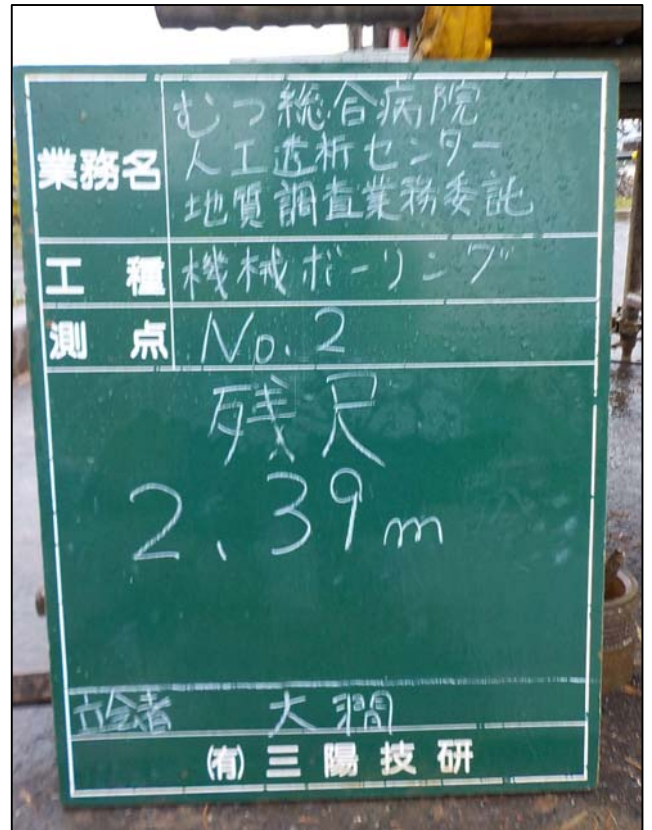 業務名 むつ総合病院
人工透析センター
地質調査業務委託
工種 機械ボーリング
測点 No.2
残尺
2.39m
立会者 大澗
(有)三陽技研